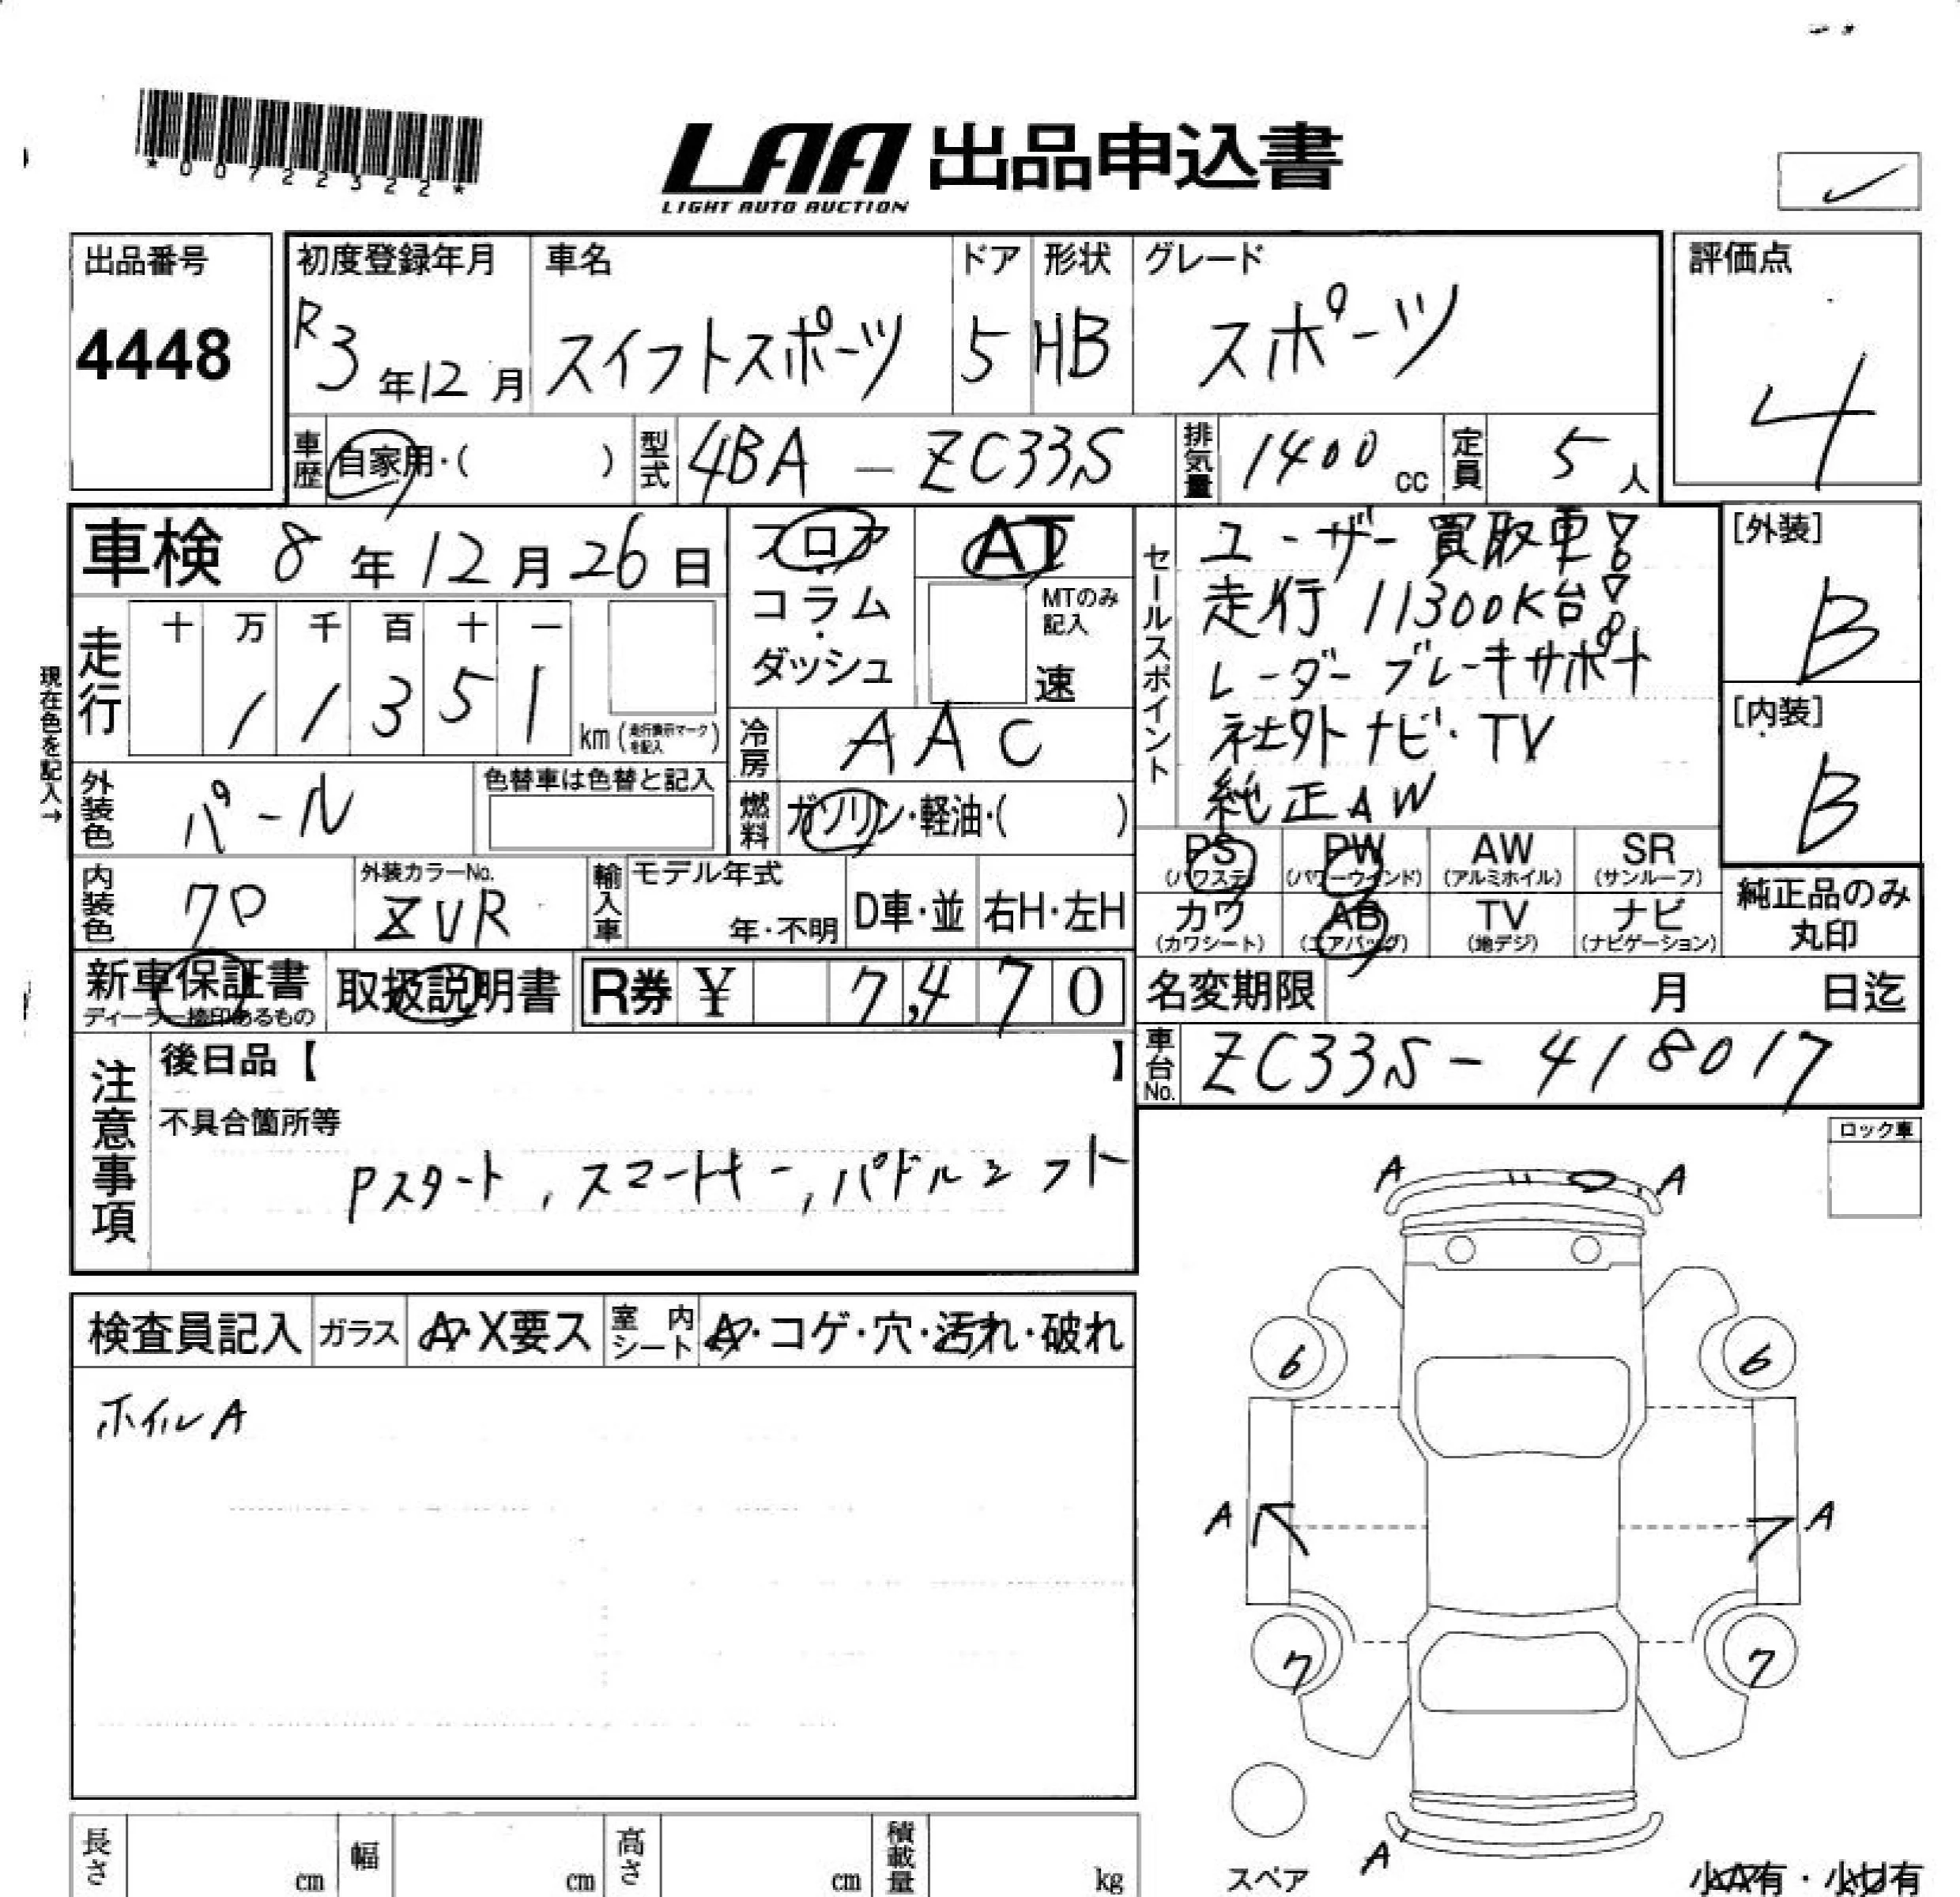 *00722322*
LAA 出品申込書
LIGHT AUTO AUCTION
出品番号
4448
初度登録年月
R3年12月
車名
スイフトスポーツ
ドア
5
形状
HB
グレード
スポーツ
評価点
4
車歴 自家用・( )
型式 4BA - ZC33S
排気量 1400 cc
定員 5人
車検 8年12月26日
フロア・コラム・ダッシュ
AT
MTのみ記入
速
セールスポイント
ユーザー買取車!
走行11300K台!
レーダーブレーキサポート
社外ナビ・TV
純正AW
[外装]
B
[内装]
B
現在色を記入→
走行
十 万 千 百 十 一
1 1 3 5 1
km(走行表示マークを記入)
冷房 AAC
外装色 パール
色替車は色替と記入
燃料 ガソリン・軽油・( )
PS (パワステ)
PW (パワーウインド)
AW (アルミホイル)
SR (サンルーフ)
カワ (カワシート)
AB (エアバッグ)
TV (地デジ)
ナビ (ナビゲーション)
純正品のみ丸印
内装色 クロ
外装カラーNo.
ZVR
輸入車
モデル年式
年・不明
D車・並
右H・左H
新車保証書
ディーラー捺印あるもの
取扱説明書
R券 ¥ 7,470
名変期限 月 日迄
車台No. ZC33S-418017
注意事項
後日品【 】
不具合箇所等
Pスタート,スマートキー,パドルシフト
ロック車
検査員記入
ガラス A・X要ス
室内シート A・コゲ・穴・汚れ・破れ
ホイルA
A A
6 6
A A
7 7
A
スペア
長さ cm
幅 cm
高さ cm
積載量 kg
小A有・小U有